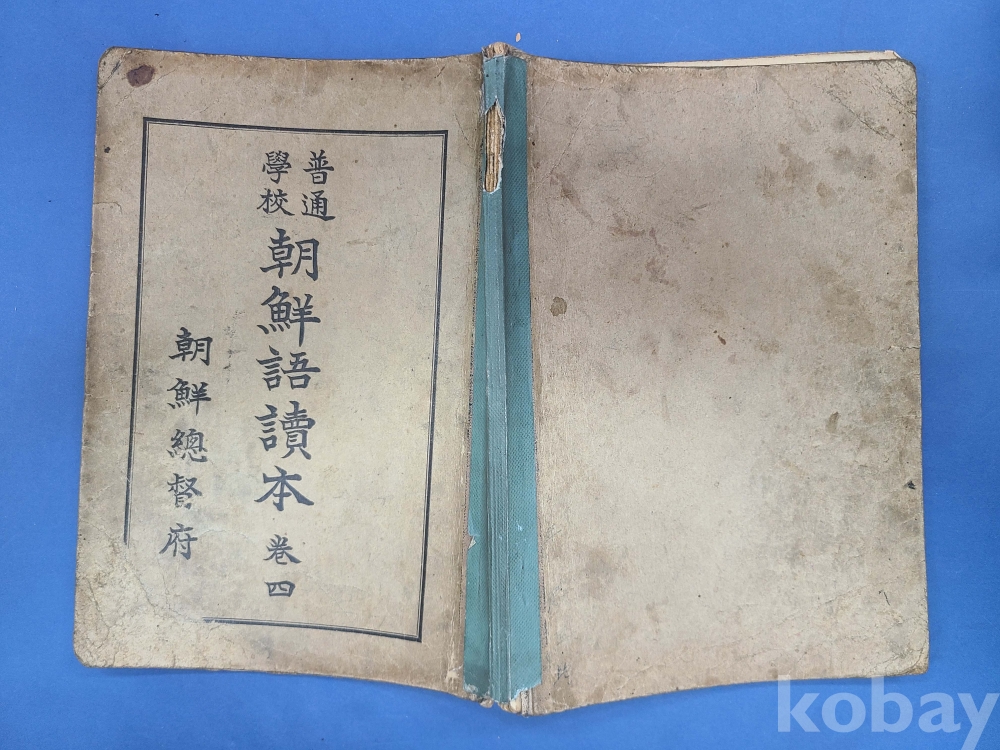 普通
學校
朝鮮語讀本 卷四
朝鮮總督府
kobay